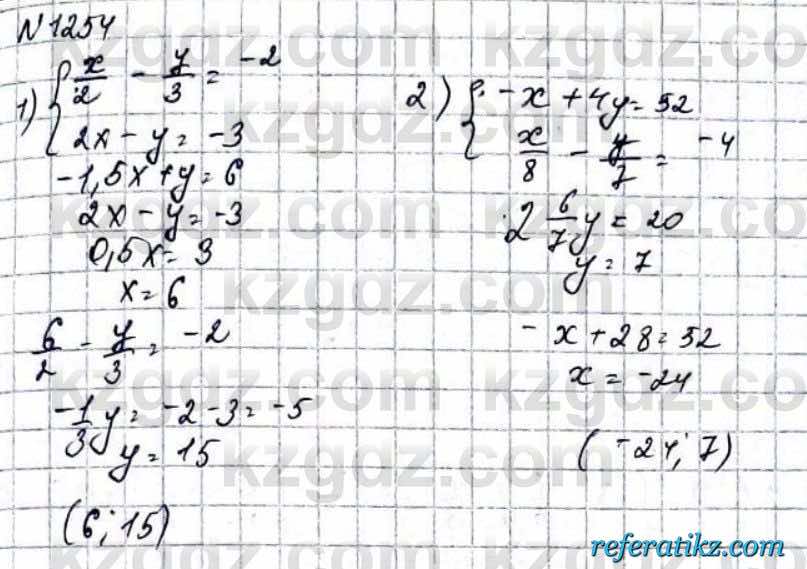 N 1254
1) { x/2 - y/3 = -2
2x - y = -3
-1,5x + y = 6
2x - y = -3
0,5x = 3
x = 6
6/2 - y/3 = -2
-1/3 y = -2 - 3 = -5
y = 15
(6; 15)
2) { -x + 4y = 52
x/8 - y/7 = -4
2 6/7 y = 20
y = 7
-x + 28 = 52
x = -24
(-24; 7)
kzgdz.com
referatikz.com